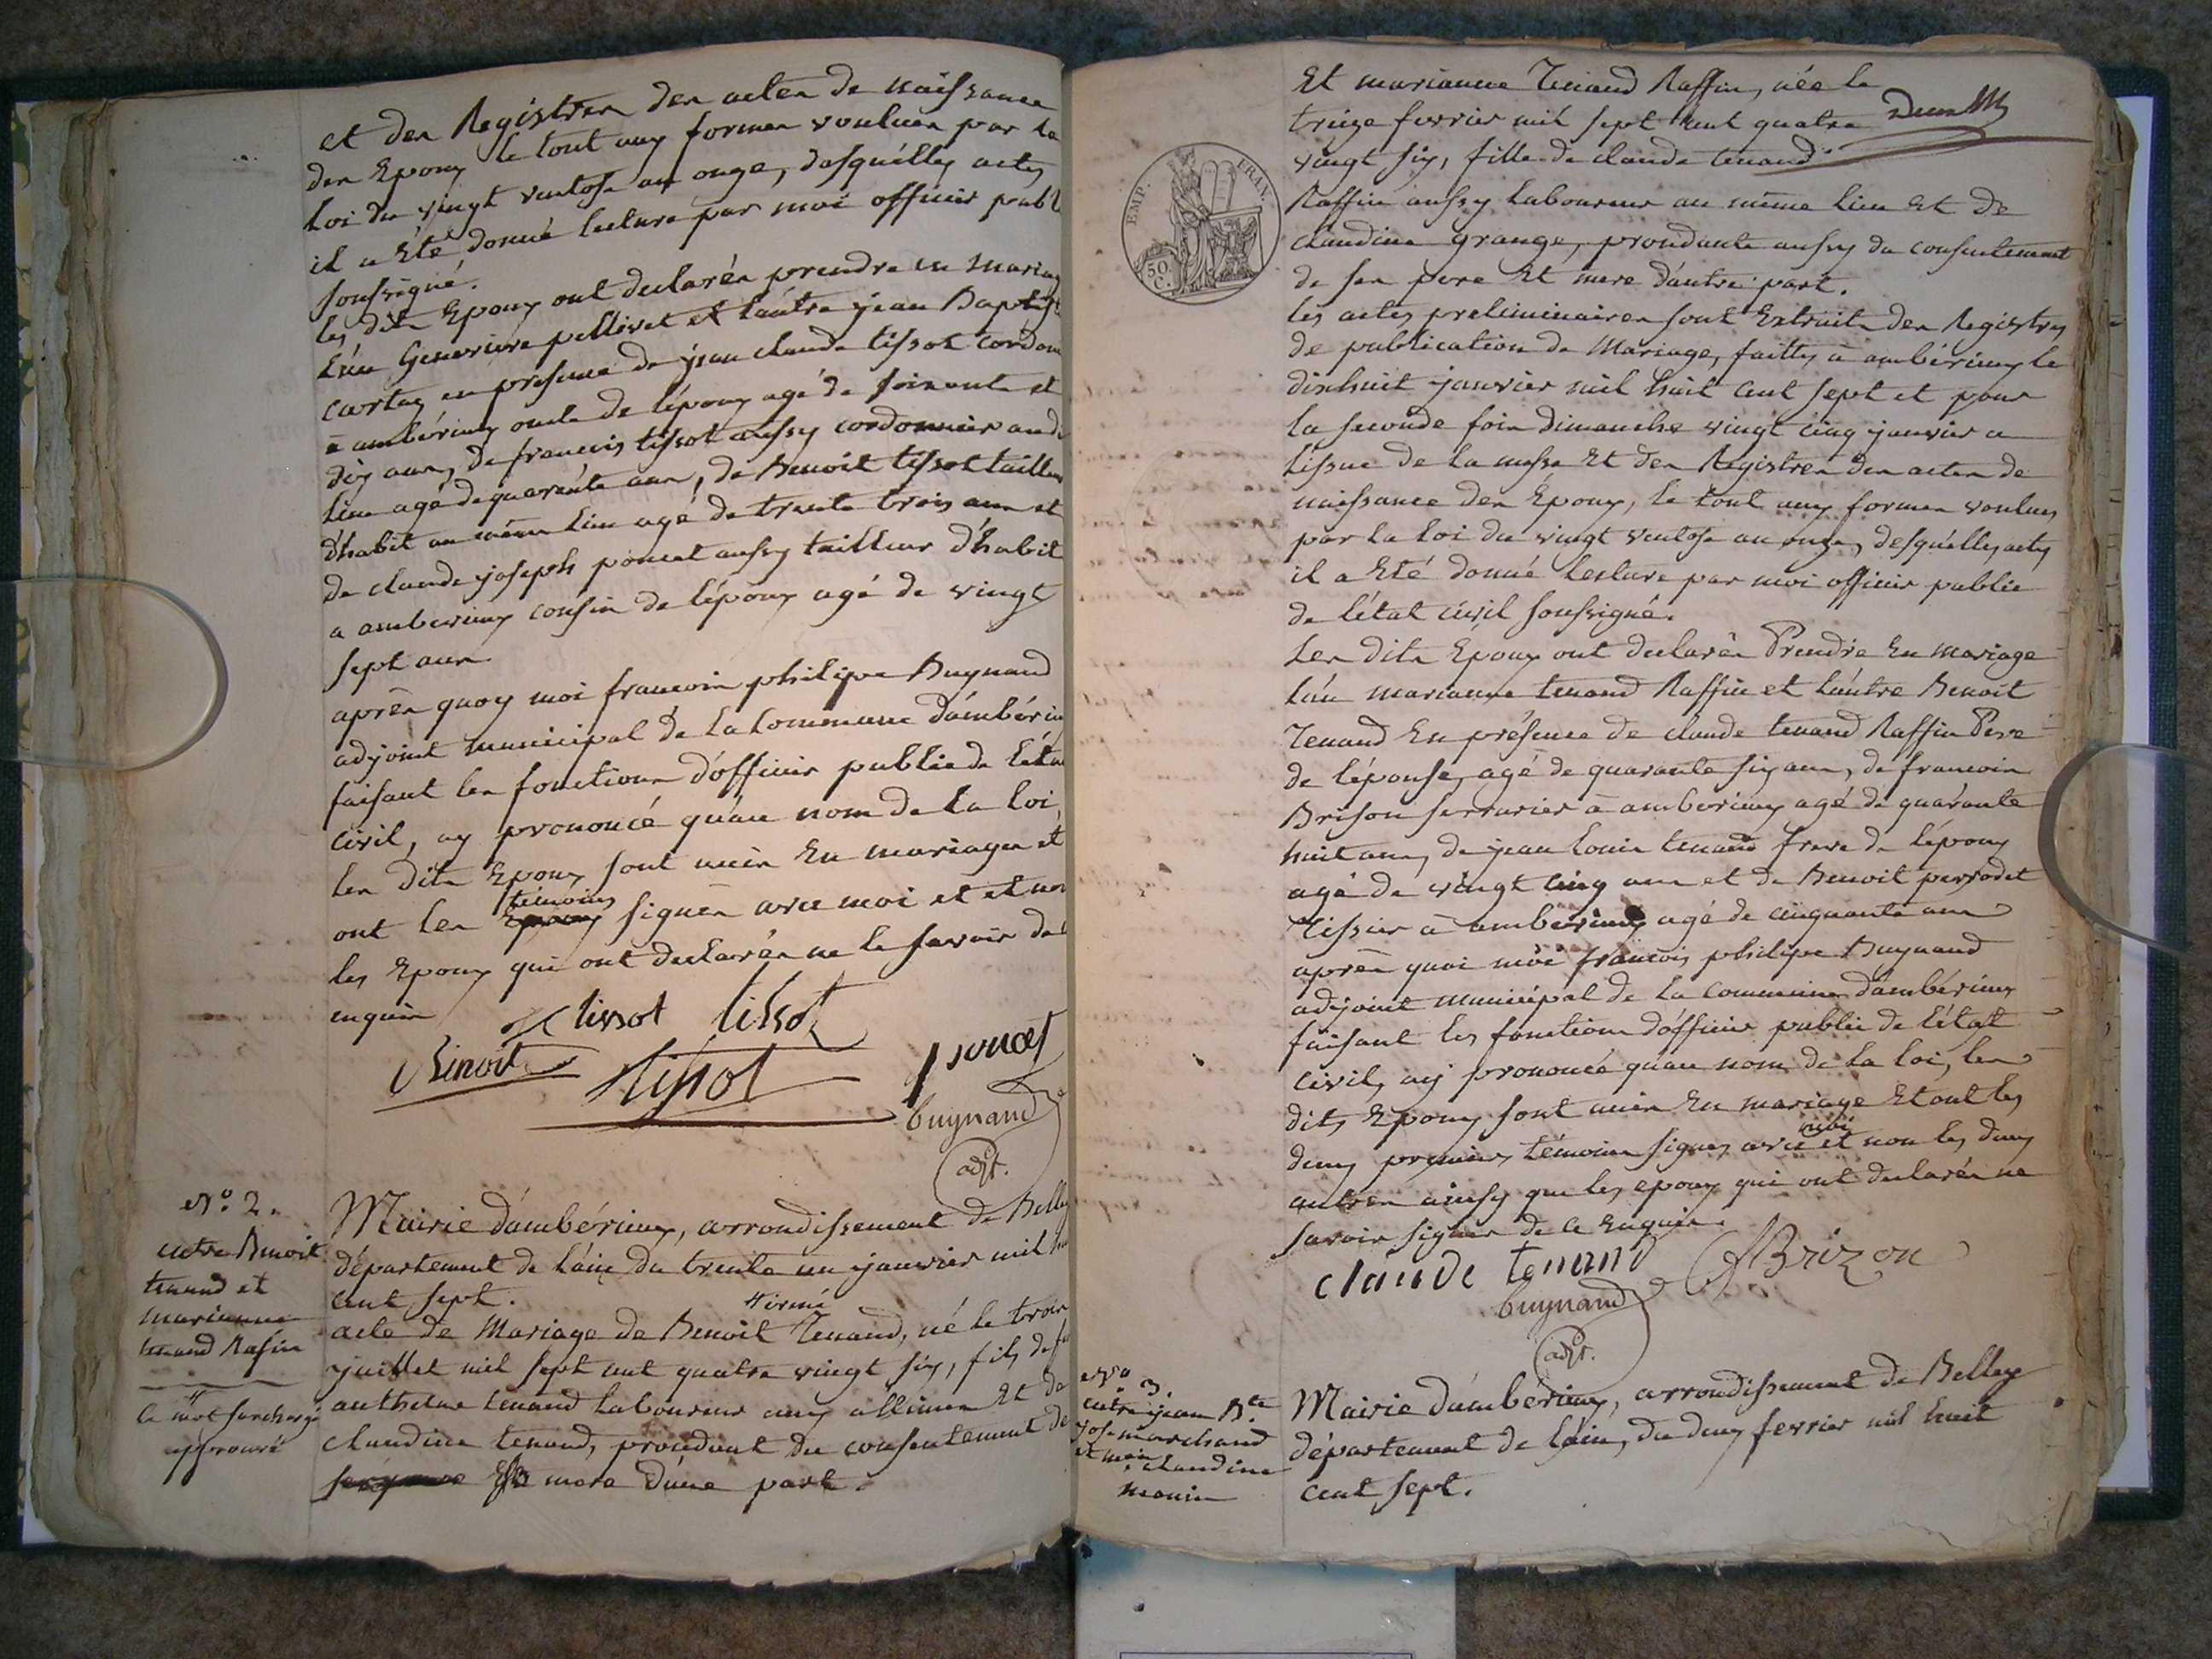 et des Registres des actes de naissance
des Epoux le tout aux formes voulues par la
Loi du vingt ventose an onze, desquelles actes
il a Eté donné lecture par moi officier publ
soussigné.
les dits Epoux ont declarés prendre en mariag
L'un Genevieve pellivet et L'autre jean Baptist
en presence de jean claude tissot cordon
a ambérieux oncle de l'époux agé de soixante et
dix ans, de francois tissot aussy cordonnier aud
Lieu agé de quarente ans, de Benoit tissot tailleu
d'habit au même Lieu agé de trente trois ans et
de claude joseph poncet aussy tailleur d'habit
a amberieux cousin de l'époux agé de vingt
sept ans.
après quoy moi francois philipe Buynand
adjoint municipal de la Commune d'ambérieu
faisant les fonctions d'officier public de L'éta
civil, ay prononcé qu'au nom de la loi,
les dits Epoux sont unis En mariages et
témoins
ont les signés avec moi et et non
les Epoux qui ont declarés ne le savoir de
enquis
tissot tissot
Benoit tissot poncet
buynand
adjt.
N.° 2.
entre Benoit
tenand et
marianne
tenand Rafin
le mot surchargé
approuvé
Mairie d'ambérieux, arrondissement de Belley
département de l'ain du trente un janvier mil
cent sept.
acte de Mariage de Benoit Tenand, né le trois
juillet mil sept cent quatre vingt six, fils de
anthelme tenand Laboureur aux allimes Et de
claudine tenand, procedant du consentement de
mere d'une part.
Et marianne Tenand Raffin, née le
treize fevrier mil sept cent quatre
vingt six, fille de claude tenand
EMP. FRAN.
50 C.
Raffin aussy Laboureur au même lieu et de
claudine grange, procedante aussy du consentement
de ses pere Et mere d'autre part.
les actes preliminaires sont Extraits des Registres
de publication de Mariage, faittes à ambérieux le
dixhuit janvier mil huit cent sept et pour
la seconde fois dimanche vingt cinq janvier a
L'issue de la messe Et des Registres des actes de
naissance des Epoux, le tout aux formes voulues
par la loi du vingt ventose an onze, desquelles actes
il a Eté donné Lecture par moi officier public
de l'état civil soussigné.
Les dits Epoux ont declarés Prendre En mariage
L'un marianne tenand Raffin et L'autre Benoit
Tenand En présence de claude tenand Raffin Pere
de l'épouse, agé de quarante six ans, de francois
Brison serrurier à amberieux agé de quarante
huit ans, de jean Louis tenand frere de l'époux
agé de vingt cinq ans et de Benoit perrodet
Tissier à amberieux agé de cinquante ans
après quoi moi francois philipe Buynand
adjoint municipal de la commune d'ambérieux
faisant les fonctions d'officier public de L'état
civil, ay prononcé qu'au nom de la loi, les
dits Epoux sont unis En mariage Et ont les
moi
deux premiers témoins signés avec et non les deux
autres ainsy que les epoux qui ont declarés ne
savoir signer de ce Enquis.
claude tenand Brizon
buynand
adjt.
N.° 3.
entre jean B.te
marchand
claudine
monin
Mairie d'ambérieux, arrondissement de Belley
département de l'ain, du deux fevrier mil huit
cent sept.